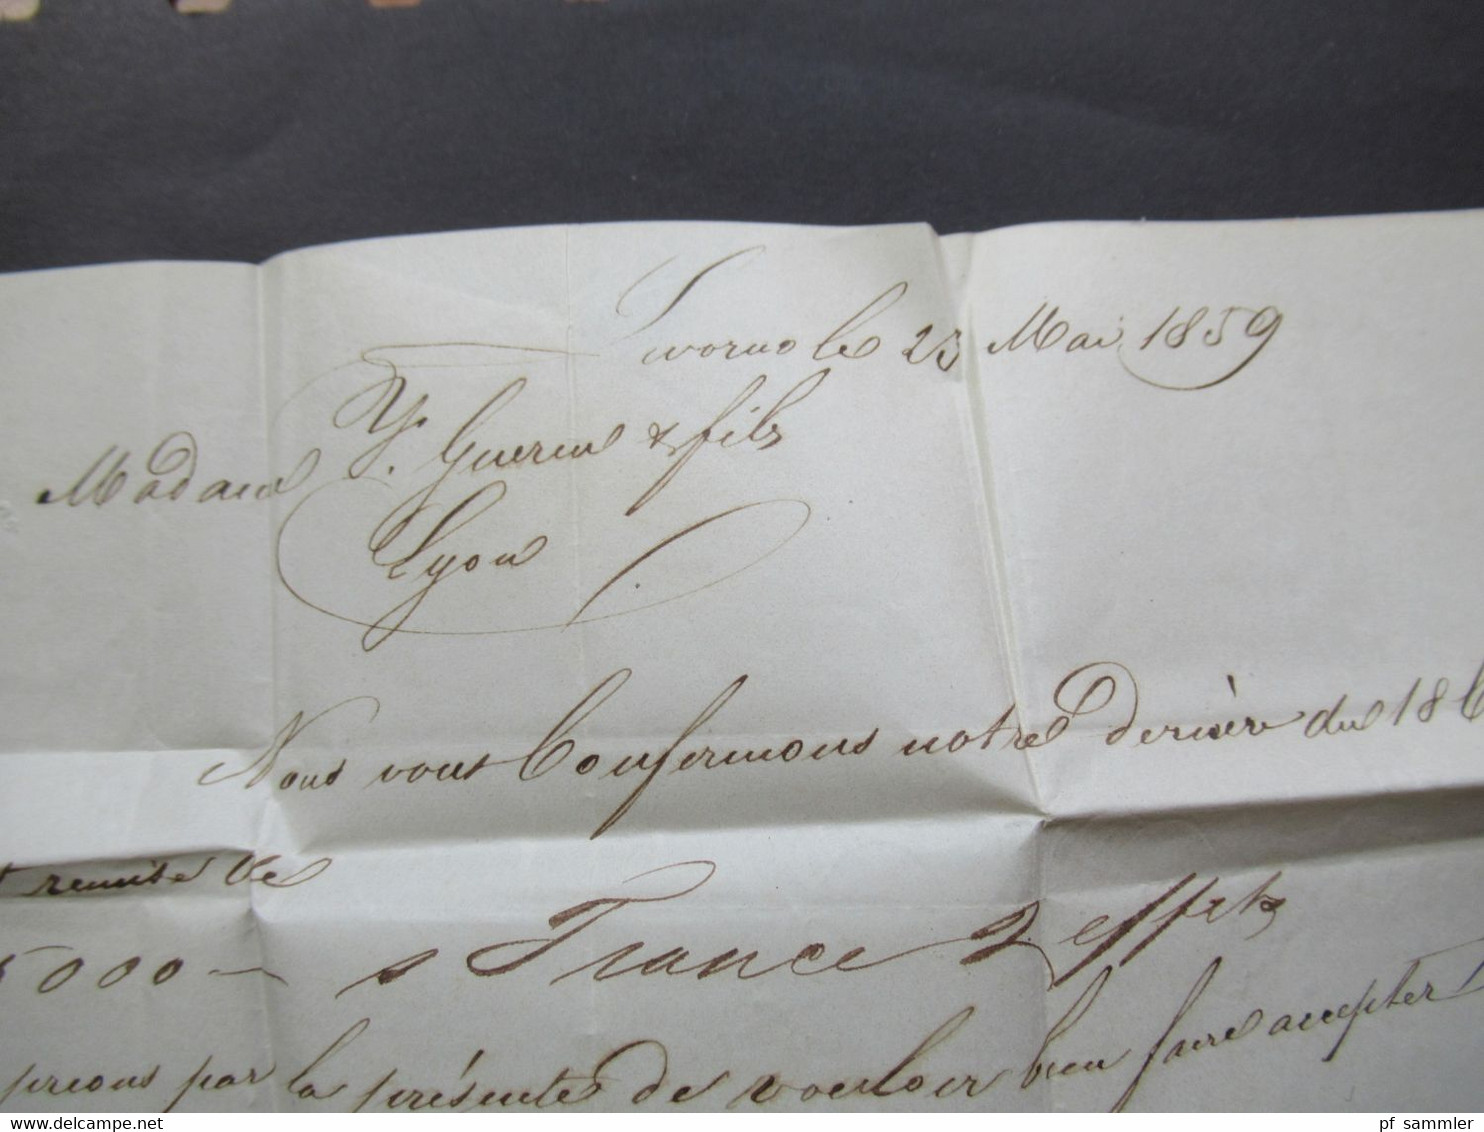 Livorno le 23 Mai 1859
Madame Ve. Guerin & fils
Lyon
Nous vous Confirmons notre dernière du 18
remise de
5000 — s/ France 2 effets
prions par la présente de vouloir bien faire accepter
pf sammler